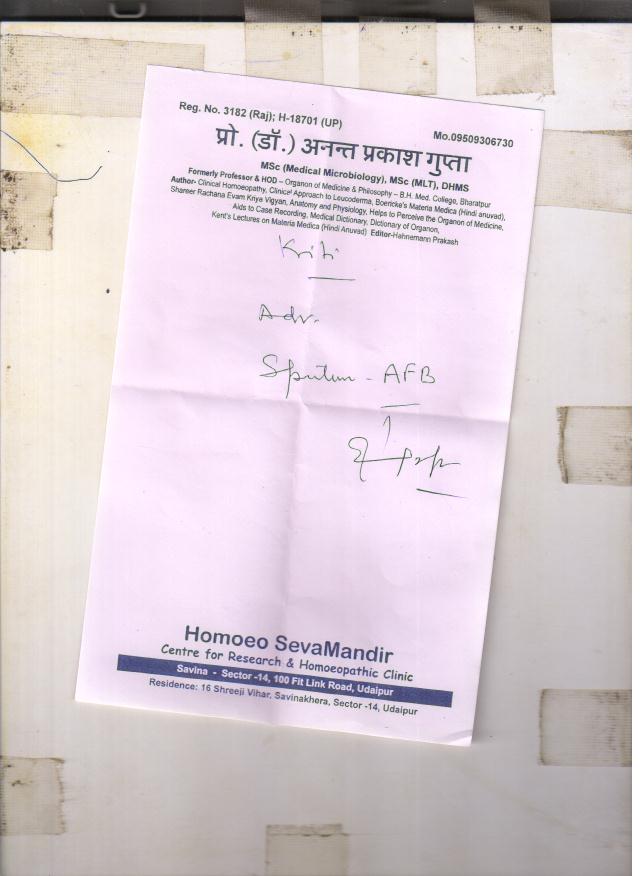 Reg. No. 3182 (Raj); H-18701 (UP)
Mo.09509306730
प्रो. (डॉ.) अनन्त प्रकाश गुप्ता
MSc (Medical Microbiology), MSc (MLT), DHMS
Formerly Professor & HOD – Organon of Medicine & Philosophy – B.H. Med. College, Bharatpur
Author- Clinical Homoeopathy, Clinical Approach to Leucoderma, Boericke's Materia Medica (Hindi anuvad),
Shareer Rachana Evam Kriya Vigyan, Anatomy and Physiology, Helps to Perceive the Organon of Medicine,
Aids to Case Recording, Medical Dictionary, Dictionary of Organon,
Kent's Lectures on Materia Medica (Hindi Anuvad) Editor-Hahnemann Prakash
Adv.
Sputum - AFB
Homoeo SevaMandir
Centre for Research & Homoeopathic Clinic
Savina - Sector -14, 100 Fit Link Road, Udaipur
Residence: 16 Shreeji Vihar, Savinakhera, Sector -14, Udaipur